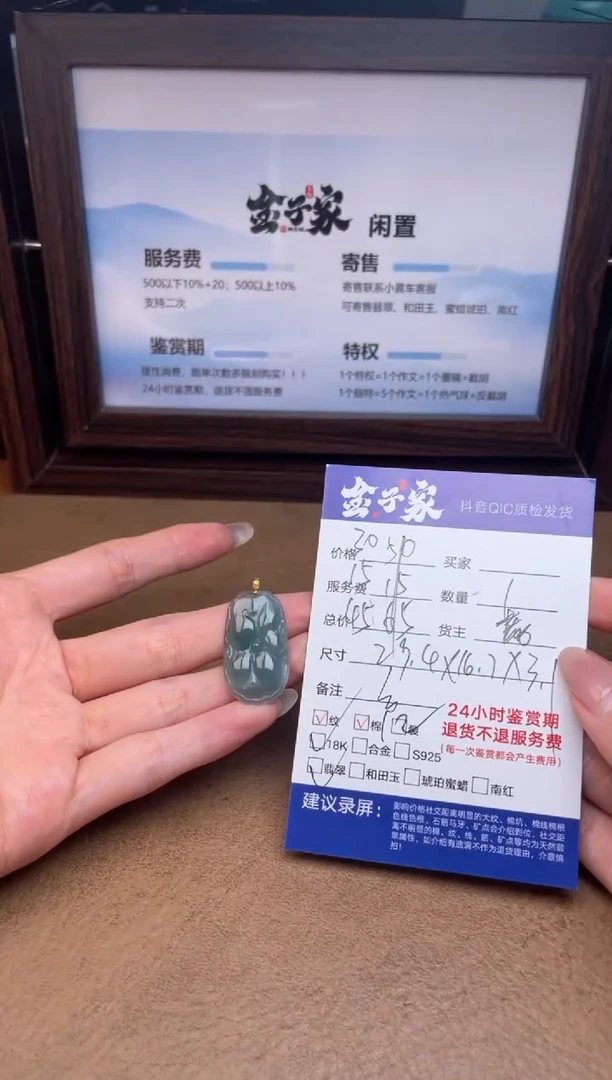 金子家 闲置
服务费
500以下10%+20；500以上10%
支持二次
寄售
寄售联系小黄车客服
可寄售翡翠、和田玉、蜜蜡琥珀、南红
鉴赏期
理性消费，跑单次数多限制购买！！！
24小时鉴赏期，退货不退服务费
特权
1个特权=1个作文=1个墨镜=截胡
1个超特=5个作文=1个热气球=反截胡
金子家 抖音QIC质检发货
价格 买家
服务费 15 数量 1
总价 货主
尺寸 29.4X16.7X3.1
备注
纹 棉 裂
18K 合金 S925
翡翠 和田玉 琥珀蜜蜡 南红
24小时鉴赏期
退货不退服务费
(每一次鉴赏都会产生费用)
建议录屏：
影响价格社交距离明显的大纹、棉坑、棉线棉根
色线色根，石筋马牙，矿点会介绍到位，社交距
离不明显的棉、纹、绺、筋、矿点等均为天然翡
翠属性，如介绍有遗漏不作为退货理由，介意慎
拍！